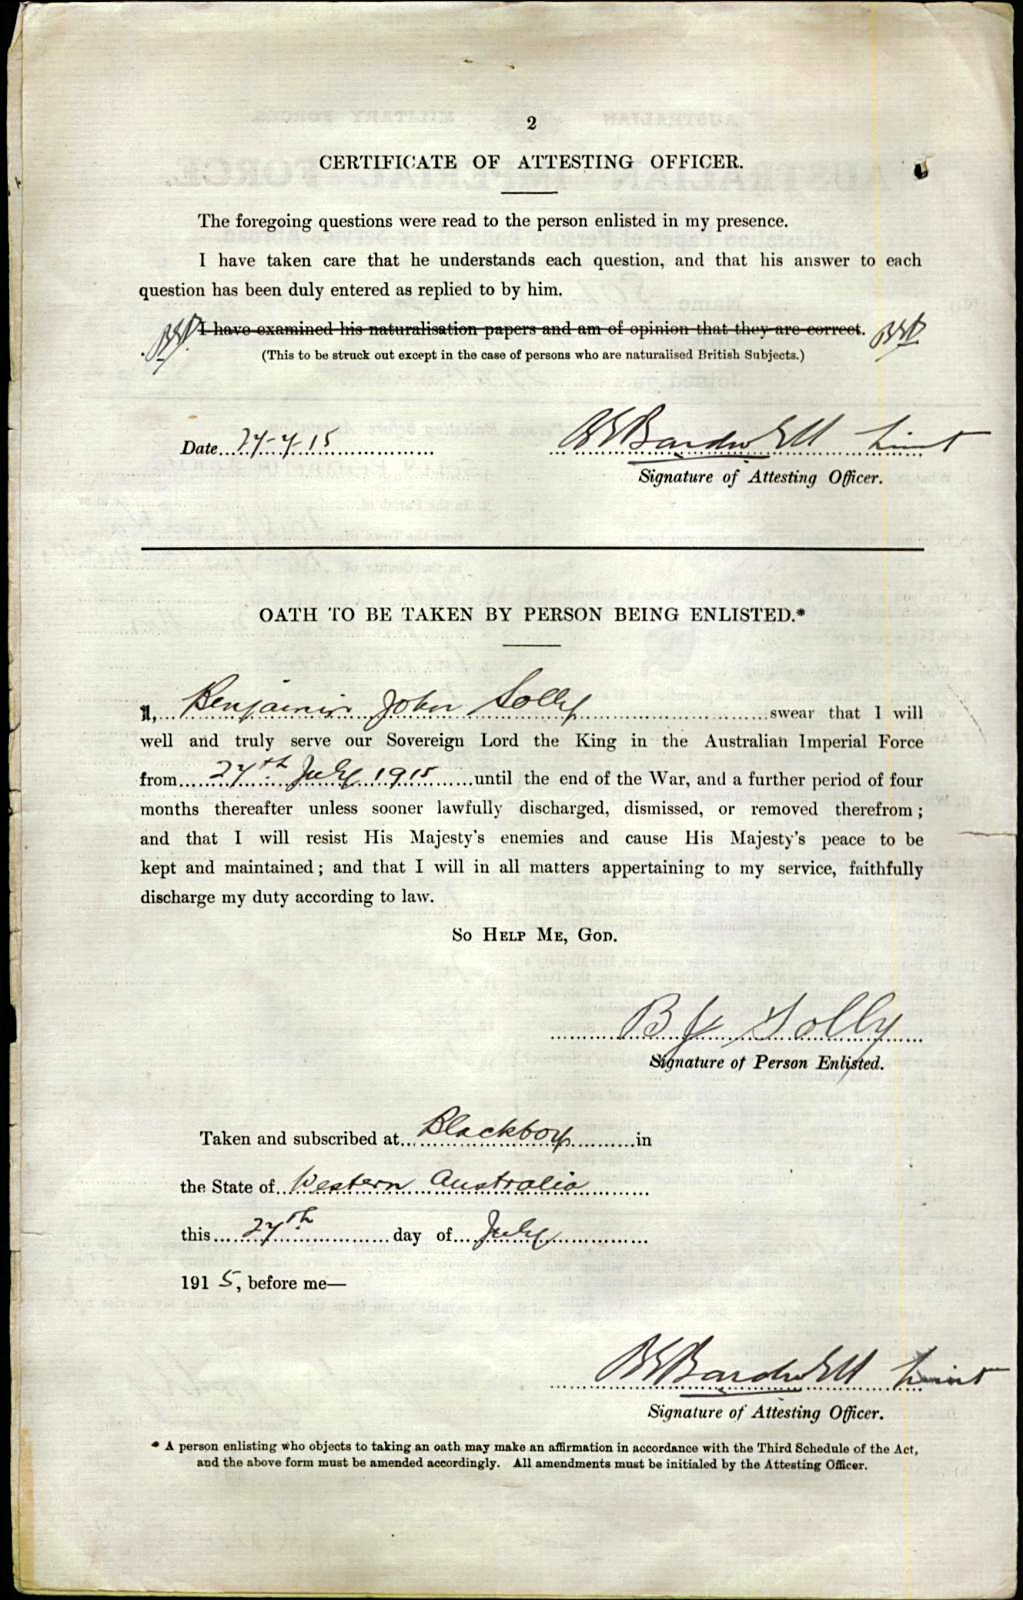 2
CERTIFICATE OF ATTESTING OFFICER.
The foregoing questions were read to the person enlisted in my presence.
I have taken care that he understands each question, and that his answer to each
question has been duly entered as replied to by him.
I have examined his naturalisation papers and am of opinion that they are correct.
(This to be struck out except in the case of persons who are naturalised British Subjects.)
Date 27-7-15 Bardwell Lieut
Signature of Attesting Officer.
OATH TO BE TAKEN BY PERSON BEING ENLISTED.*
I, Benjamin John Solly swear that I will
well and truly serve our Sovereign Lord the King in the Australian Imperial Force
from 27th July 1915 until the end of the War, and a further period of four
months thereafter unless sooner lawfully discharged, dismissed, or removed therefrom;
and that I will resist His Majesty's enemies and cause His Majesty's peace to be
kept and maintained; and that I will in all matters appertaining to my service, faithfully
discharge my duty according to law.
So Help Me, God.
B J Solly
Signature of Person Enlisted.
Taken and subscribed at Blackboy in
the State of Western Australia
this 27th day of July
1915, before me—
Bardwell Lieut
Signature of Attesting Officer.
* A person enlisting who objects to taking an oath may make an affirmation in accordance with the Third Schedule of the Act,
and the above form must be amended accordingly. All amendments must be initialed by the Attesting Officer.